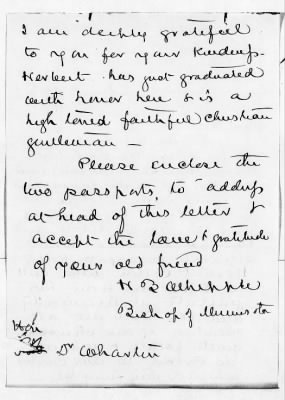 I am deeply grateful
to you for your kindness.
Herbert has just graduated
with honor here & is a
high toned faithful christian
gentleman –
Please enclose the
two passports, to address
at head of this letter &
accept the love & gratitude
of your old friend
H B Whipple
Bishop of Minnesota
Hon
Dr Wharton